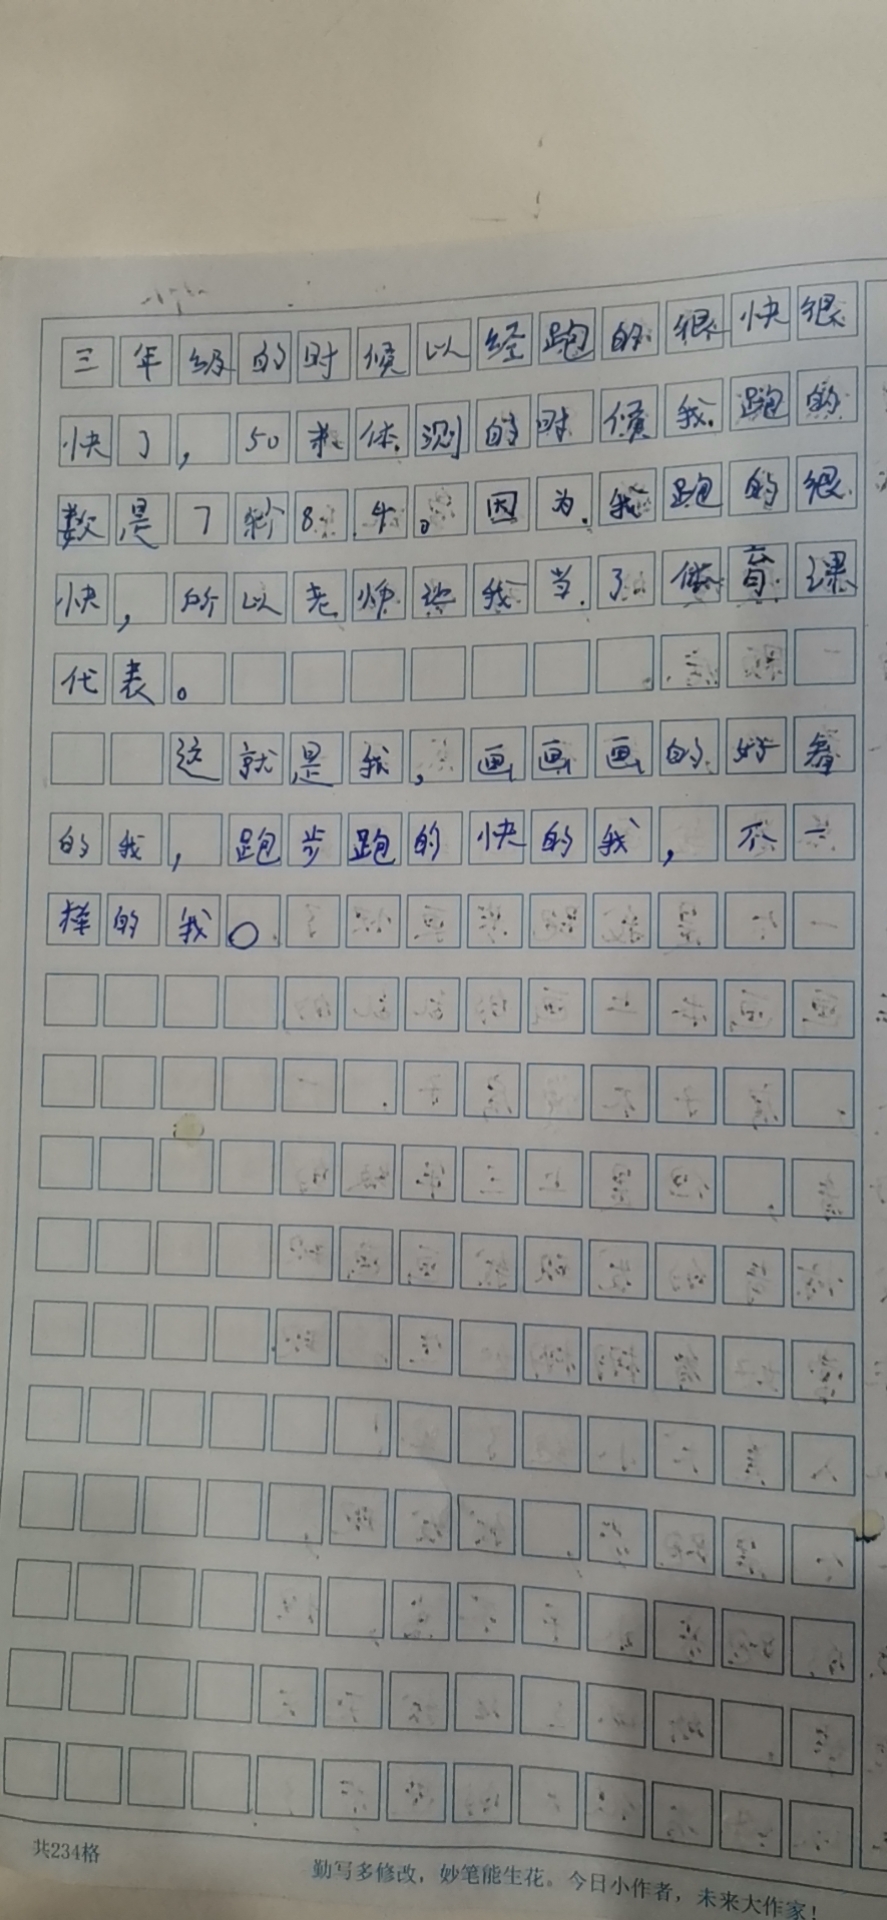 三年级的时候以经跑的很快很
快了，50米体测的时候我跑的
数是7秒84。因为我跑的很
快，所以老师让我当了体育课
代表。
这就是我，画画画的好看
的我，跑步跑的快的我，不一
样的我。
共234格
勤写多修改，妙笔能生花。今日小作者，未来大作家！